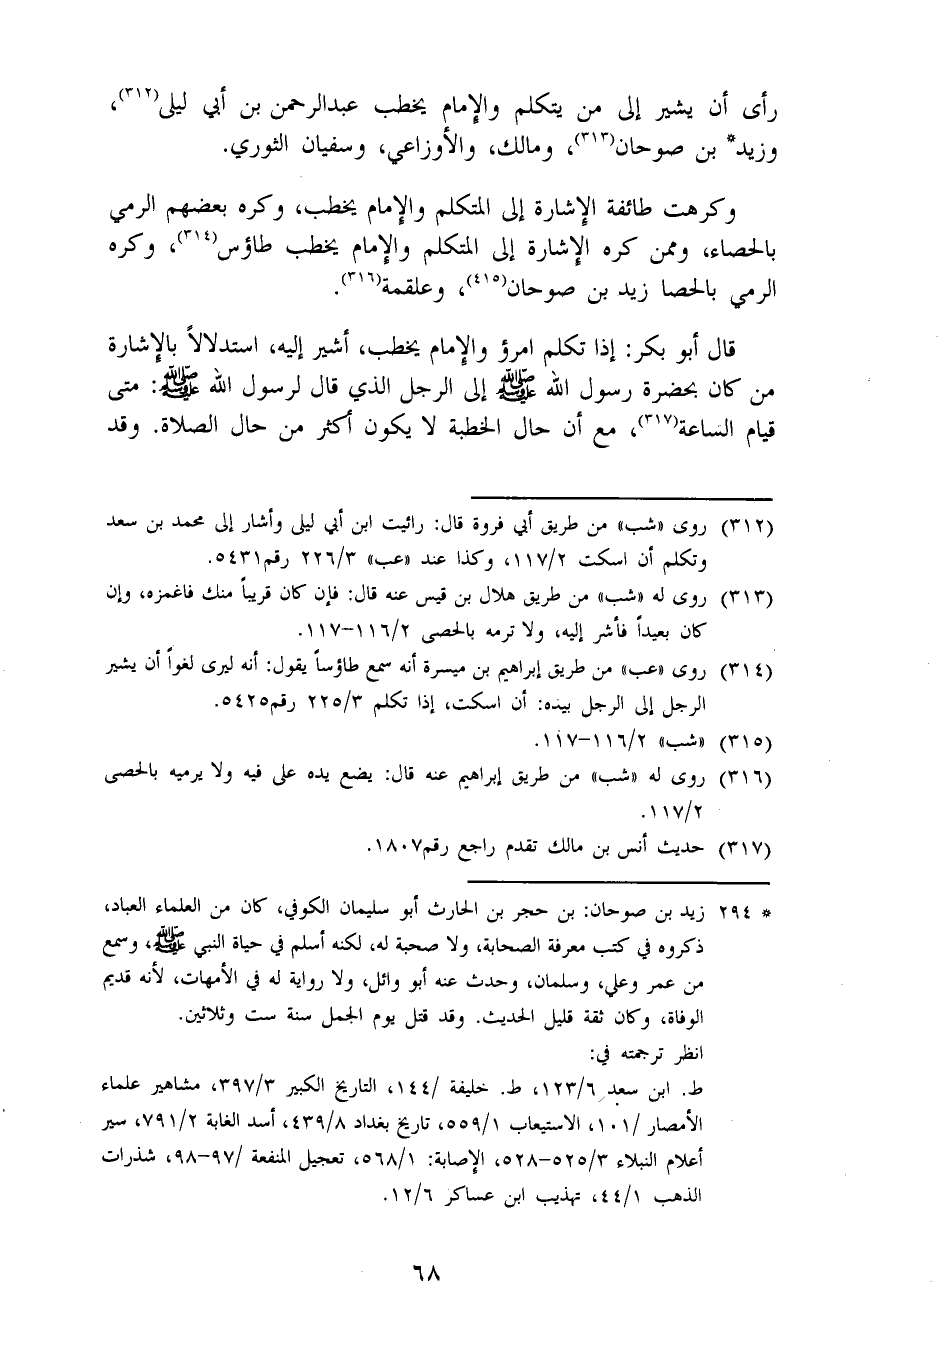 رأى أن يشير إلى من يتكلم والإمام يخطب عبدالرحمن بن أبي ليلى(٣١٢)،
وزيد* بن صوحان(٣١٣)، ومالك، والأوزاعي، وسفيان الثوري.
وكرهت طائفة الإشارة إلى المتكلم والإمام يخطب، وكره بعضهم الرمي
بالحصاء، وممن كره الإشارة إلى المتكلم والإمام يخطب طاؤس(٣١٤)، وكره
الرمي بالحصا زيد بن صوحان(٤١٥)، وعلقمة(٣١٦).
قال أبو بكر: إذا تكلم امرؤ والإمام يخطب، أشير إليه، استدلالاً بالإشارة
من كان بحضرة رسول الله ﷺ إلى الرجل الذي قال لرسول الله ﷺ: متى
قيام الساعة(٣١٧)، مع أن حال الخطبة لا يكون أكثر من حال الصلاة. وقد
(٣١٢) روى «شب» من طريق أبي فروة قال: رائيت ابن أبي ليلى وأشار إلى محمد بن سعد
وتكلم أن اسكت ١١٧/٢، وكذا عند «عب» ٢٢٦/٣ رقم٥٤٣١.
(٣١٣) روى له «شب» من طريق هلال بن قيس عنه قال: فإن كان قريباً منك فاغمزه، وإن
كان بعيداً فأشر إليه، ولا ترمه بالحصى ١١٦/٢-١١٧.
(٣١٤) روى «عب» من طريق إبراهيم بن ميسرة أنه سمع طاؤساً يقول: أنه ليرى لغواً أن يشير
الرجل إلى الرجل بيده: أن اسكت، إذا تكلم ٢٢٥/٣ رقم٥٤٢٥.
(٣١٥) «شب» ١١٦/٢-١١٧.
(٣١٦) روى له «شب» من طريق إبراهيم عنه قال: يضع يده على فيه ولا يرميه بالحصى
١١٧/٢.
(٣١٧) حديث أنس بن مالك تقدم راجع رقم١٨٠٧.
* ٢٩٤ زيد بن صوحان: بن حجر بن الحارث أبو سليمان الكوفي، كان من العلماء العباد،
ذكروه في كتب معرفة الصحابة، ولا صحبة له، لكنه أسلم في حياة النبي ﷺ، وسمع
من عمر وعلي، وسلمان، وحدث عنه أبو وائل، ولا رواية له في الأمهات، لأنه قديم
الوفاة، وكان ثقة قليل الحديث. وقد قتل يوم الجمل سنة ست وثلاثين.
انظر ترجمته في:
ط. ابن سعد ١٢٣/٦، ط. خليفة /١٤٤، التاريخ الكبير ٣٩٧/٣، مشاهير علماء
الأمصار /١٠١، الاستيعاب ٥٥٩/١، تاريخ بغداد ٤٣٩/٨، أسد الغابة ٧٩١/٢، سير
أعلام النبلاء ٥٢٥/٣-٥٢٨، الإصابة: ٥٦٨/١، تعجيل المنفعة /٩٧-٩٨، شذرات
الذهب ٤٤/١، تهذيب ابن عساكر ١٢/٦.
٦٨